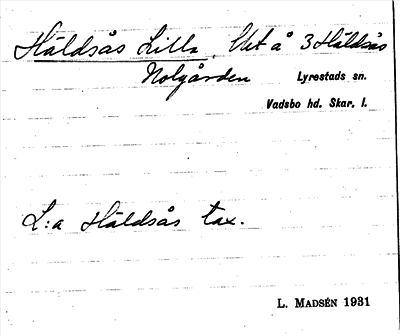 Häldsås Lilla, Ut å 3 Häldsås
Nolgården Lyrestads sn.
Vadsbo hd. Skar. l.
L:a Häldsås tax.
L. MADSÉN 1931